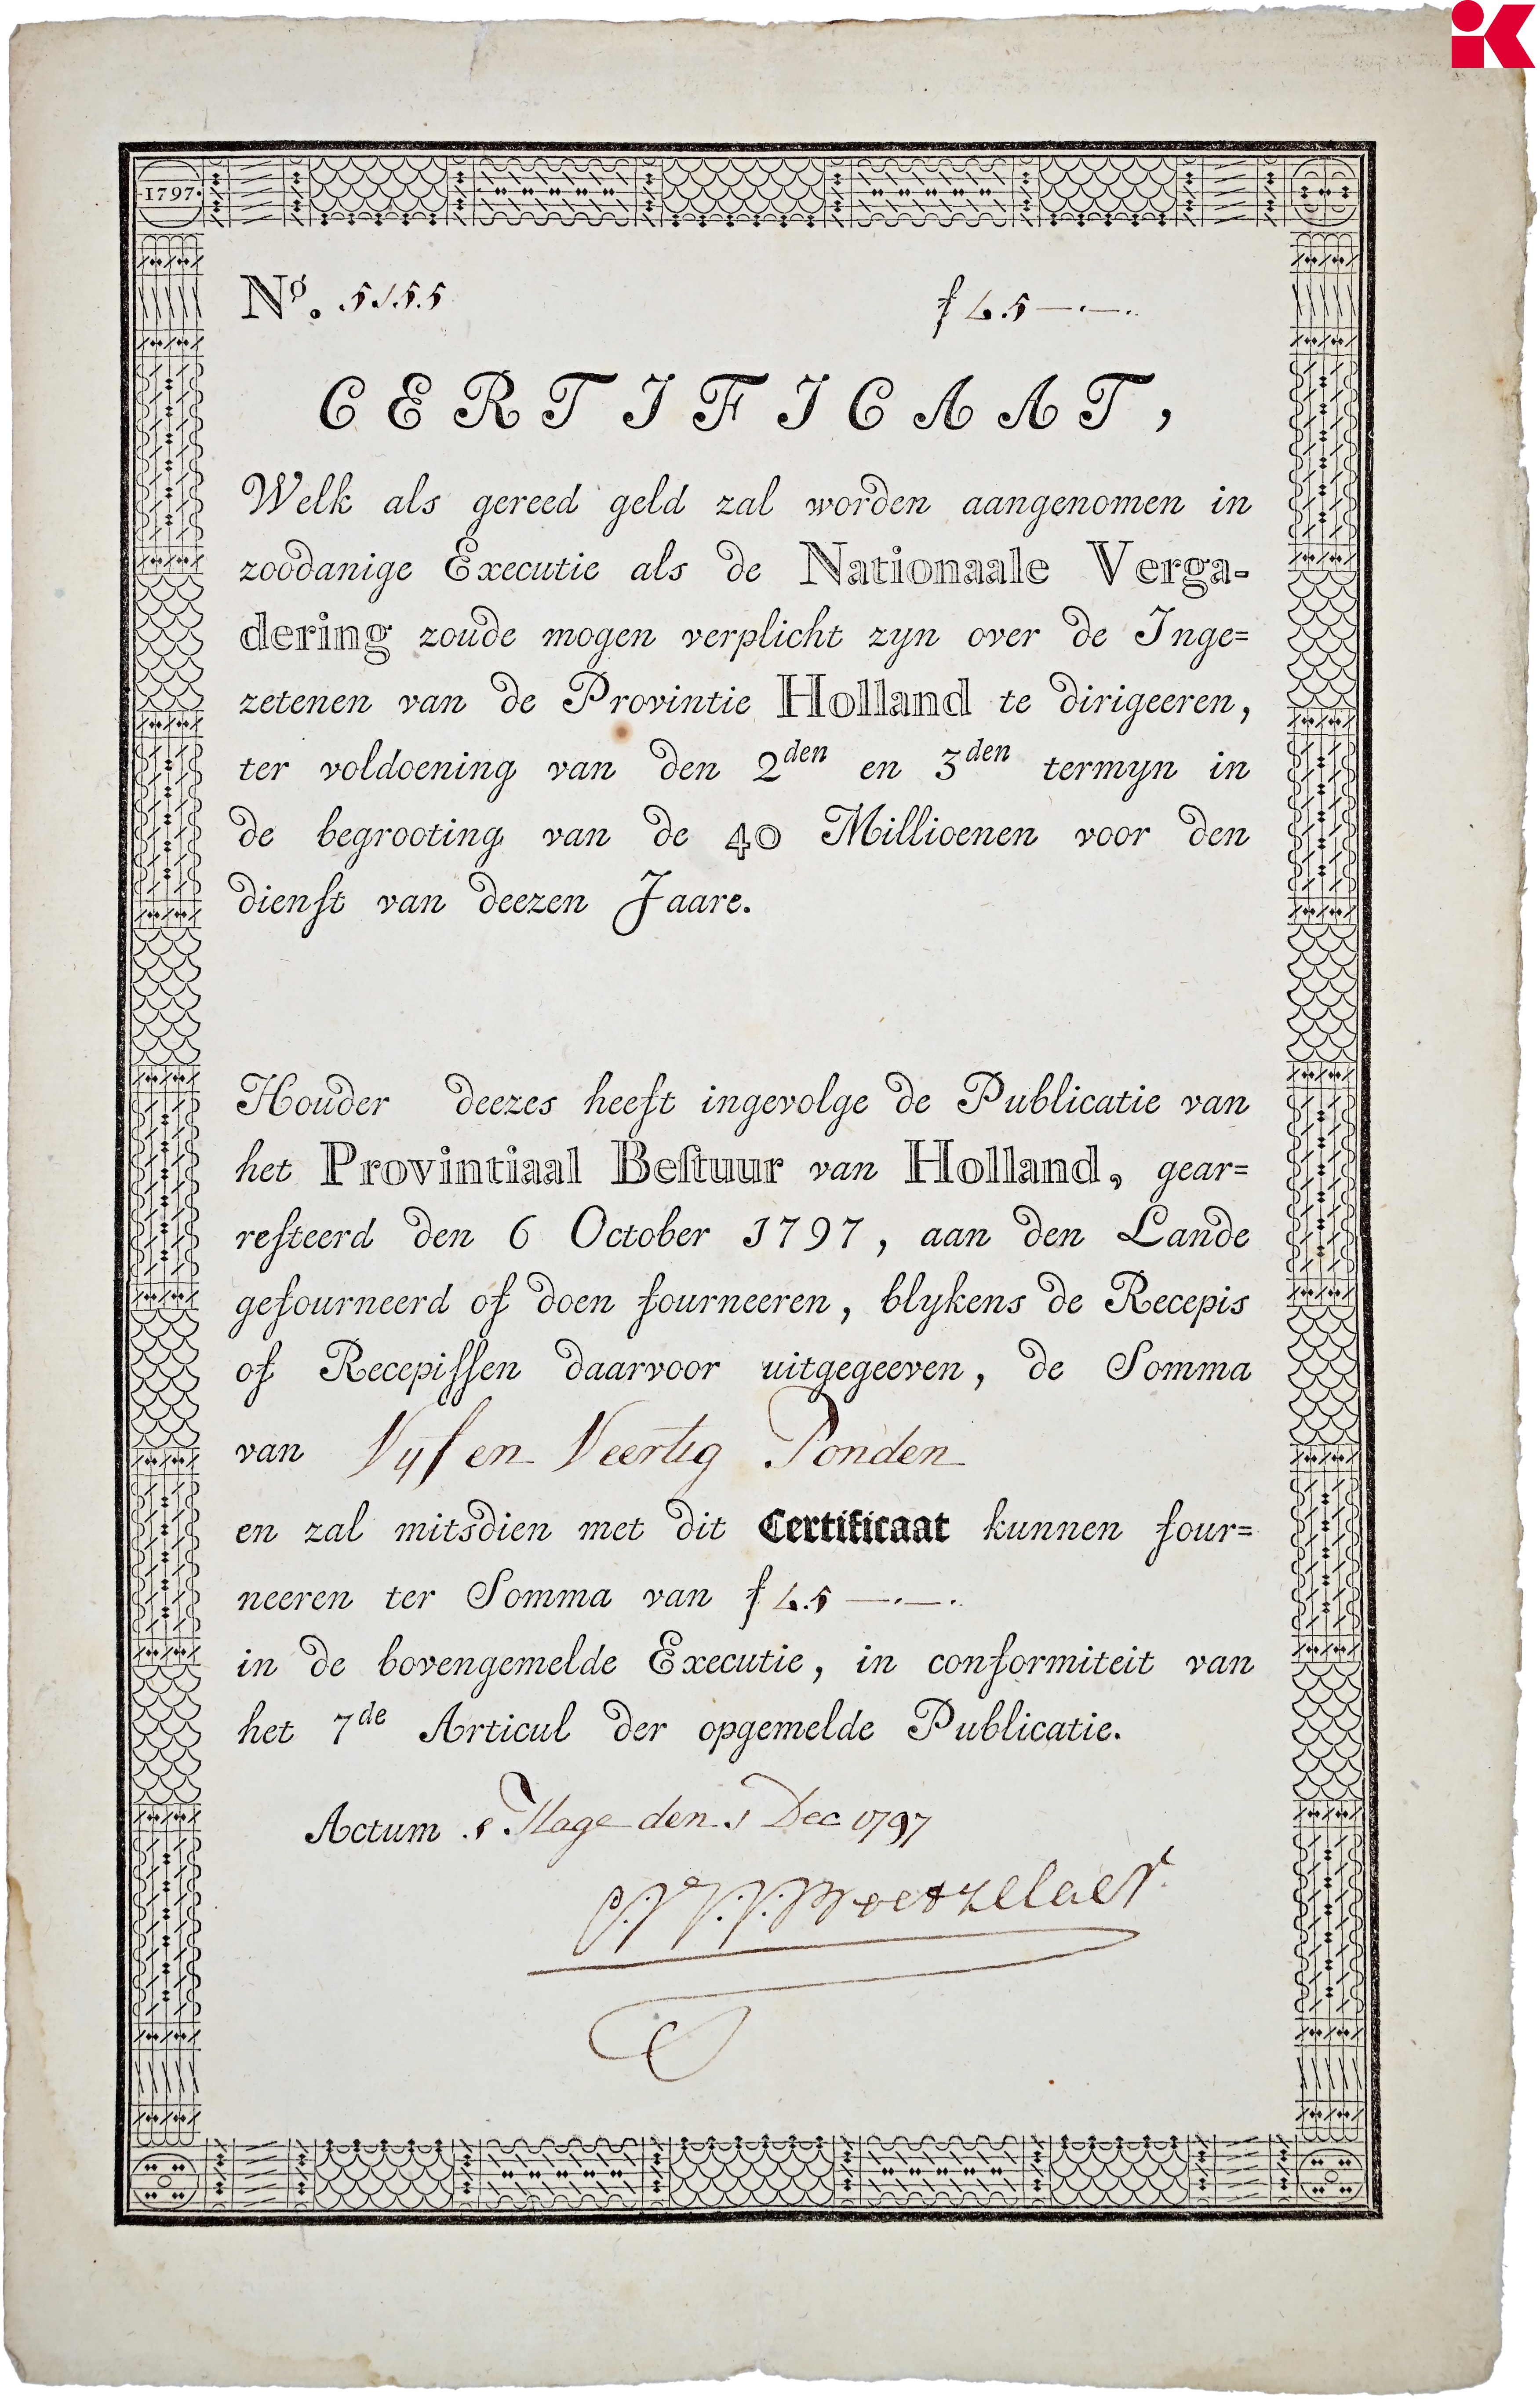 1797.
No. 5155
f 45 —.—.
CERTIFICAAT,
Welk als gereed geld zal worden aangenomen in
zoodanige Executie als de Nationaale Verga-
dering zoude mogen verplicht zyn over de Inge=
zetenen van de Provintie Holland te dirigeeren,
ter voldoening van den 2den en 3den termyn in
de begrooting van de 40 Millioenen voor den
dienſt van deezen Jaare.
Houder deezes heeft ingevolge de Publicatie van
het Provintiaal Beſtuur van Holland, gear=
reſteerd den 6 October 1797, aan den Lande
gefourneerd of doen fourneeren, blykens de Recepis
of Recepiſſen daarvoor uitgegeeven, de Somma
van Vyf en Veertig Ponden
en zal mitsdien met dit Certificaat kunnen four=
neeren ter Somma van f 45 —.—.
in de bovengemelde Executie, in conformiteit van
het 7de Articul der opgemelde Publicatie.
Actum s Hage den 1 Dec 1797